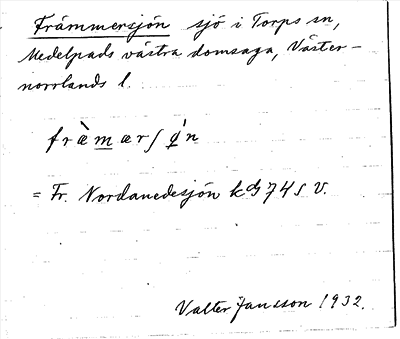 Främmersjön sjö i Torps sn,
Medelpads västra domsaga, Väster-
norrlands l.
= Fr. Nordanedesjön kbl 74 S V.
Valter Jansson 1932.